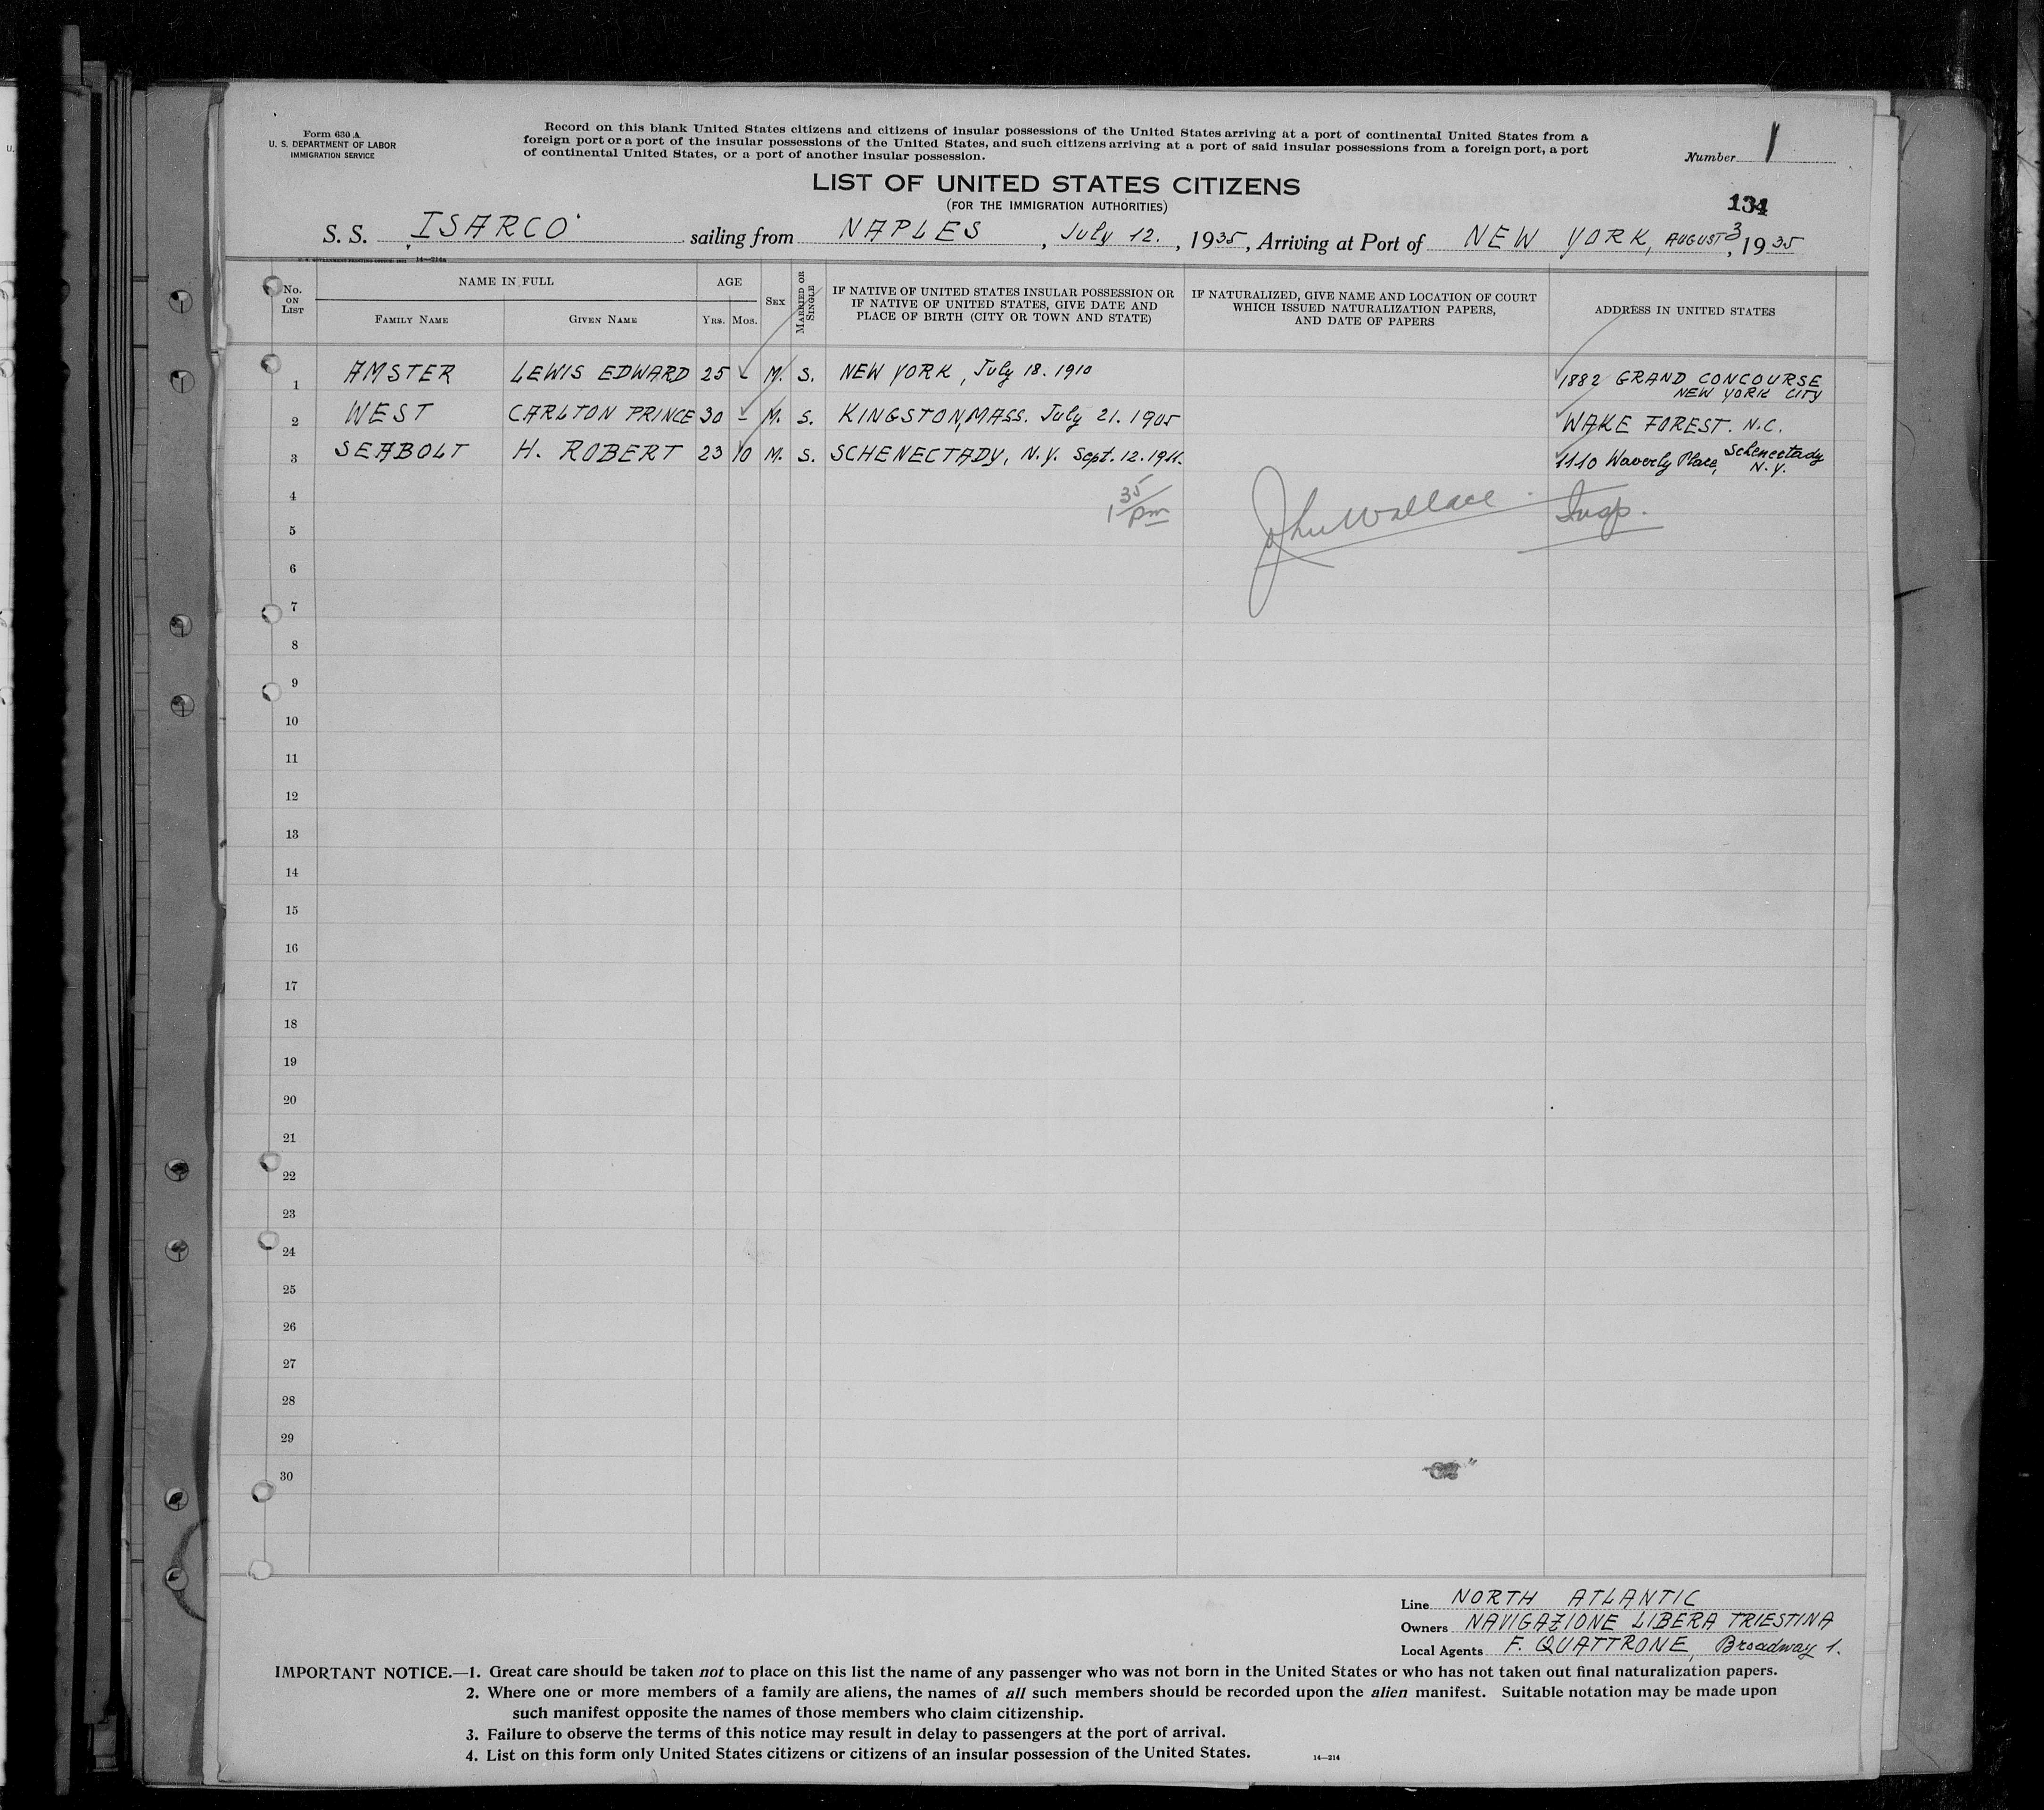 Form 630 A
U. S. DEPARTMENT OF LABOR
IMMIGRATION SERVICE
Record on this blank United States citizens and citizens of insular possessions of the United States arriving at a port of continental United States from a
foreign port or a port of the insular possessions of the United States, and such citizens arriving at a port of said insular possessions from a foreign port, a port
of continental United States, or a port of another insular possession.
Number 1
LIST OF UNITED STATES CITIZENS
(FOR THE IMMIGRATION AUTHORITIES)
134
S. S. ISARCO sailing from NAPLES, July 12., 1935, Arriving at Port of NEW YORK, AUGUST 3, 1935
14—214a
No. ON LIST
NAME IN FULL
FAMILY NAME
GIVEN NAME
AGE
YRS. MOS.
SEX
MARRIED OR SINGLE
IF NATIVE OF UNITED STATES INSULAR POSSESSION OR
IF NATIVE OF UNITED STATES, GIVE DATE AND
PLACE OF BIRTH (CITY OR TOWN AND STATE)
IF NATURALIZED, GIVE NAME AND LOCATION OF COURT
WHICH ISSUED NATURALIZATION PAPERS,
AND DATE OF PAPERS
ADDRESS IN UNITED STATES
1 AMSTER LEWIS EDWARD 25 - M. S. NEW YORK, July 18. 1910 1882 GRAND CONCOURSE
NEW YORK CITY
2 WEST CARLTON PRINCE 30 - M. S. KINGSTON, MASS. July 21. 1905 WAKE FOREST. N.C.
3 SEABOLT H. ROBERT 23 10 M. S. SCHENECTADY, N.Y. Sept. 12. 1911. 1110 Waverly Place, Schenectady
N.Y.
4
1 35/pm John Wallace Insp.
5
6
7
8
9
10
11
12
13
14
15
16
17
18
19
20
21
22
23
24
25
26
27
28
29
30
Line NORTH ATLANTIC
Owners NAVIGAZIONE LIBERA TRIESTINA
Local Agents F. QUATTRONE, Broadway 1.
IMPORTANT NOTICE.—1. Great care should be taken not to place on this list the name of any passenger who was not born in the United States or who has not taken out final naturalization papers.
2. Where one or more members of a family are aliens, the names of all such members should be recorded upon the alien manifest. Suitable notation may be made upon
such manifest opposite the names of those members who claim citizenship.
3. Failure to observe the terms of this notice may result in delay to passengers at the port of arrival.
4. List on this form only United States citizens or citizens of an insular possession of the United States.
14—214